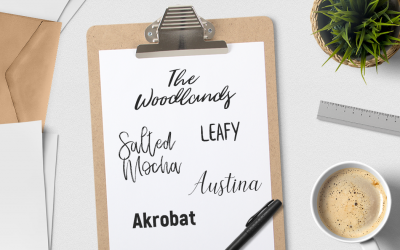 The
Woodlands
Salted
Mocha
LEAFY
Austina
Akrobat